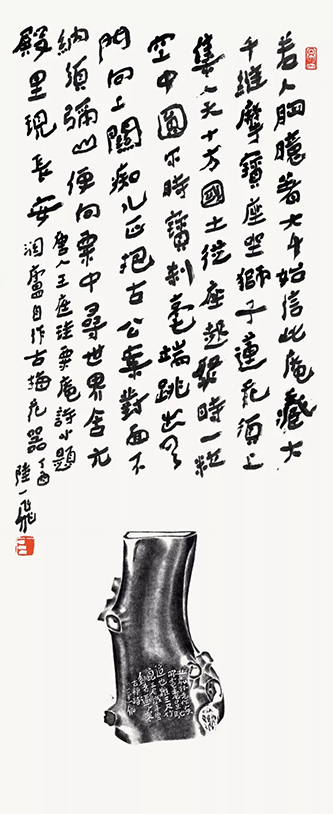 若人胸臆著大千始信此庵藏大
千維摩寶座坐獅子蓮花須上
集人天十方國土從座起時一粒
空中圓不時寶刹毫端跳出
門向上關痴儿正把古公案對面不
納須彌山便向粟中尋世界含元
殿里現長安
唐人王庭珪粟庵詩小題
潤廬自作古梅花器丁酉陸一飛